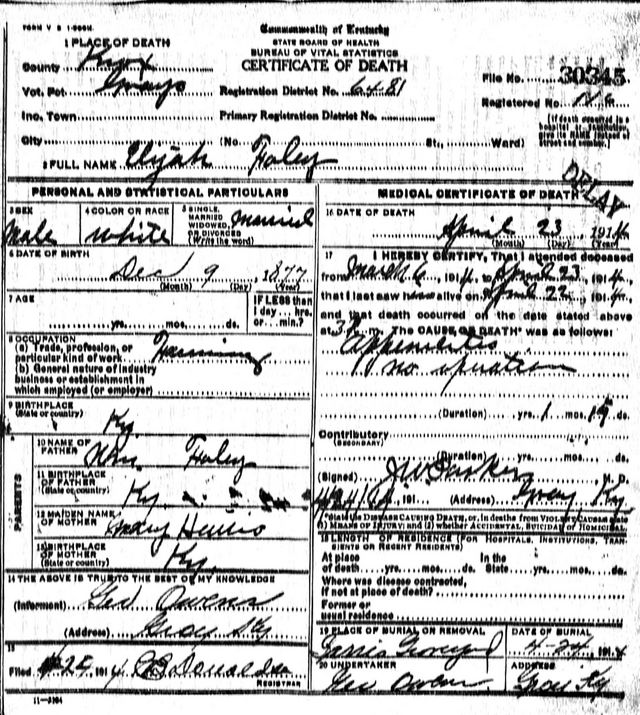 FORM V S 1-500M.
Commonwealth of Kentucky
STATE BOARD OF HEALTH
BUREAU OF VITAL STATISTICS
CERTIFICATE OF DEATH
1 PLACE OF DEATH
County Knox
Vot. Pct Grays
Inc. Town
City
Registration District No. 6481
Primary Registration District No.
(No. St., Ward)
File No. 30345
Registered No.
(If death occurred in a hospital or institution, give its NAME instead of street and number.)
2 FULL NAME Elijah Foley
DELAY
PERSONAL AND STATISTICAL PARTICULARS
3 SEX
Male
4 COLOR OR RACE
White
5 SINGLE, MARRIED WIDOWED, OR DIVORCED (Write the word)
Married
6 DATE OF BIRTH
Dec 9 1877
(Month) (Day) (Year)
7 AGE
yrs. mos. ds.
IF LESS than 1 day... hrs. or... min.?
8 OCCUPATION
(a) Trade, profession, or particular kind of work Farming
(b) General nature of industry business or establishment in which employed (or employer)
9 BIRTHPLACE
(State or country) Ky
PARENTS
10 NAME OF FATHER Wm Foley
11 BIRTHPLACE OF FATHER
(State or country) Ky.
12 MAIDEN NAME OF MOTHER Mary
13 BIRTHPLACE OF MOTHER
(State or country) Ky.
14 THE ABOVE IS TRUE TO THE BEST OF MY KNOWLEDGE
(Informant) Geo Owens
(Address) Gray Ky
15
Filed 4-25, 1914 Donaldson
REGISTRAR
11-3184
MEDICAL CERTIFICATE OF DEATH
16 DATE OF DEATH
April 23 1914
(Month) (Day) (Year)
17 I HEREBY CERTIFY, That I attended deceased
from March 6, 1914, to April 23, 1914,
that I last saw him alive on April 22, 1914,
and that death occurred on the date stated above
at 3 m. The CAUSE OF DEATH* was as follows:
Appendicitis
no operation
(Duration) yrs. 1 mos. 15 ds.
Contributory
(SECONDARY)
(Duration) yrs. mos. ds.
(Signed) J W Parker M. D.
4/24/14, 191 (Address) Gray Ky
*State the DISEASE CAUSING DEATH, or, in deaths from VIOLENT CAUSES state (1) MEANS OF INJURY; and (2) whether ACCIDENTAL, SUICIDAL or HOMICIDAL.
18 LENGTH OF RESIDENCE (FOR HOSPITALS, INSTITUTIONS, TRANSIENTS OR RECENT RESIDENTS)
At place of death yrs. mos. ds. In the State yrs. mos. ds.
Where was disease contracted, if not at place of death?
Former or usual residence
19 PLACE OF BURIAL OR REMOVAL
DATE OF BURIAL
4-24, 1914
20 UNDERTAKER
Geo Owens
ADDRESS
Gray Ky